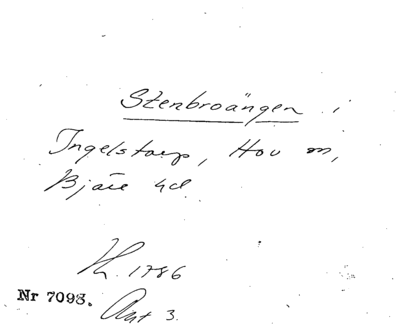 Stenbroängen i
Ingelstorp, Hov sn,
Bjäre hd
Lh. 1786
Nr 7098. Akt 3.